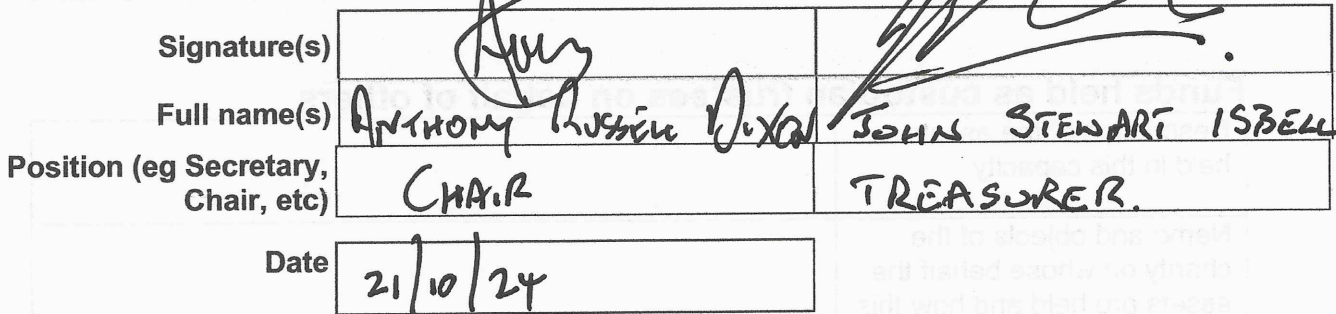 Signature(s)
Full name(s) ANTHONY RUSSELL DIXON JOHN STEWART ISBELL
Position (eg Secretary, CHAIR TREASURER.
Chair, etc)
Date 21/10/24